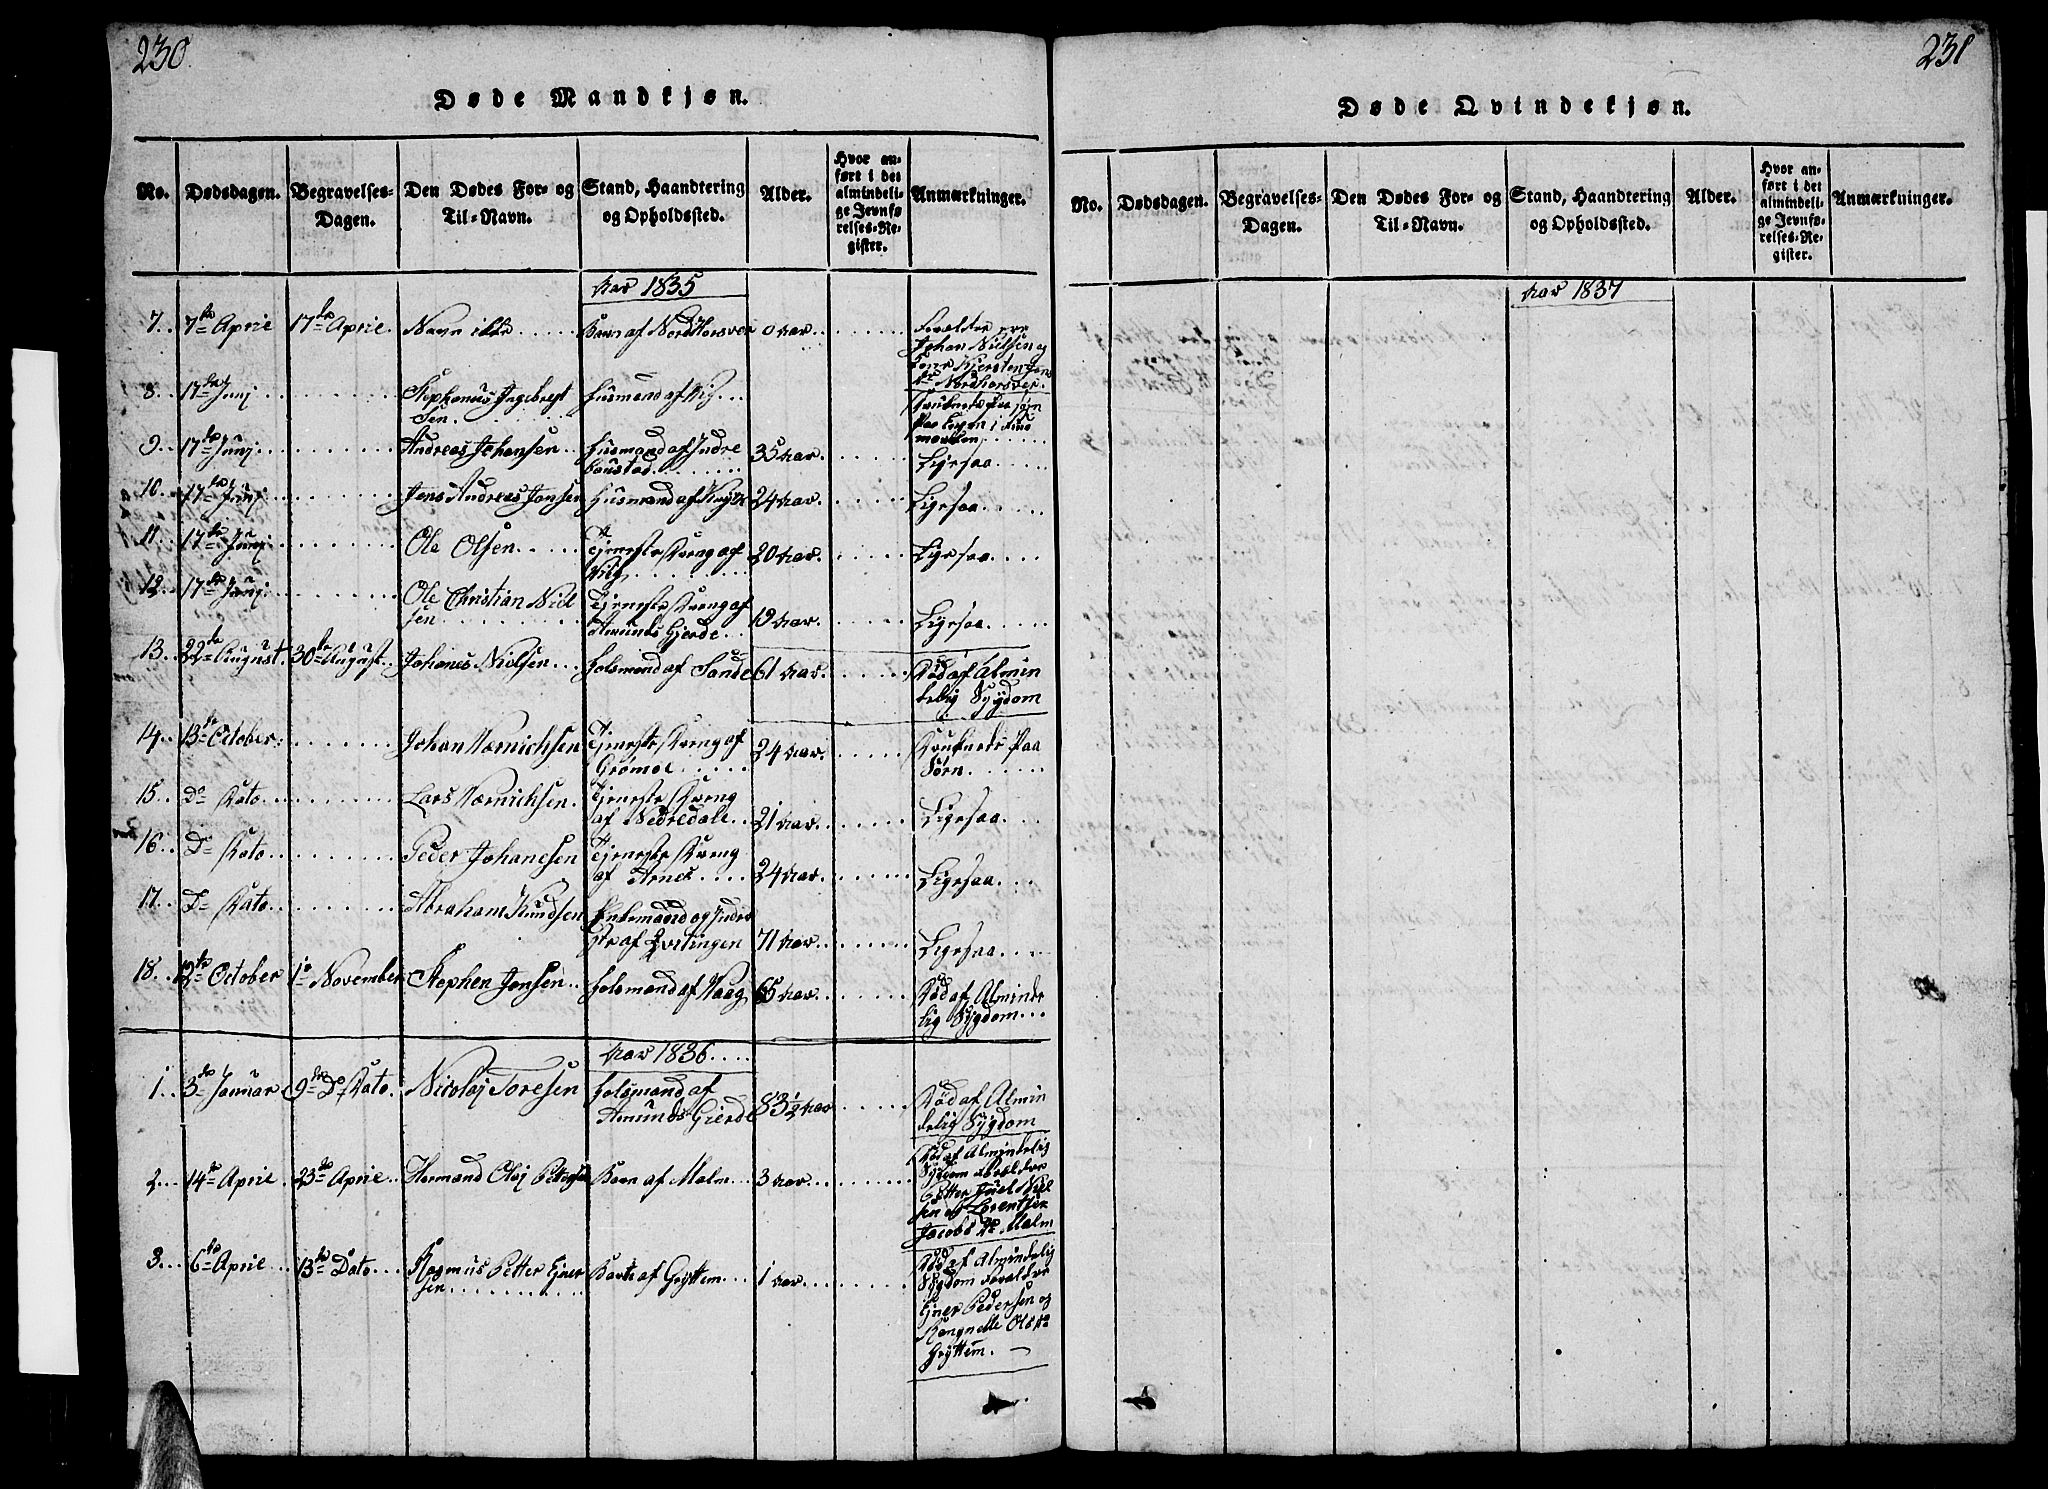 230.
Døde Mandkjøn.
No.
Dødsdagen.
Begravelses-
Dagen.
Den Dødes For- og
Til-Navn.
Stand, Haandtering
og Opholdssted.
Alder.
Hvor an-
ført i det
almindeli-
ge Jevnfø-
relses-Re-
gister.
Anmærkninger.
Aar 1835
7. 7de April 17de April Navn ikke Barn af Nordhorsver 0 Aar
Forældre ere
Johan Nielsen og
Kjersten Jens
Nordhorsver.
8. 17de Junj Stephanus Ingebregt
sen. Husmand af Vig
Druknede Paa Søen
9. 17de Junj Andreas Johansen Husmand af Indre
35 Aar. Ligesaa
10. 17de Junj Jens Andreas Jonsen Husmand af 24 Aar. Ligesaa
11. 17de Junj Ole Olsen Tjeneste Dreng af
Vig 20 Aar. Ligesaa
12. 17de Junj Ole Christian Niel
sen Tjeneste Dreng af
Amunds Gjerde 19 Aar. Ligesaa
13. 22de August. 30de August. Johanes Nielsen Folsmand af Sande 61 Aar. Død af Almin
delig Sygdom
14. 13de October. Johan Nærnichsen Tjeneste Dreng af
Grømøe 24 Aar. Druknede Paa
Søen
15. Do Dato Lars Nærnichsen. Tjeneste Dreng
af Nedredale 21 Aar. Ligesaa
16. Do Dato Peder Johanesen Tjeneste Dreng
af Arnes 24 Aar. Ligesaa
17. Do Dato Abraham Knudsen Enkemand og Inder
ste af Qvitingen 71 Aar. Ligesaa
18. 12te October 1te November Stephen Jonsen Folsmand af Vaag 65 Aar. Død af Alminde
lig Sygdom
Aar 1836
1. 3de Januar 9de Do Dato Nicolaj Toresen Folsmand af
Amunds Gierde 83 1/2 Aar Død af Almin
delig Sygdom
2. 14de April 23de April Hermand Olaj Pettersen Barn af Malm 3 Aar
Død af Almindelig
Sygdom Forældre
Petter Juel Niel
sen og Lorentse
Jacobs Dr Malm
3. 6te April 13de Dato Rasmus Petter Ejner
sen Barn af Gryttem 1 Aar
Død af Almindelig
Sygdom Forældre
Ejner Pedersen og
Rangnelle Ols Dr
Gryttem.
231
Døde Qvindekjøn.
No.
Dødsdagen.
Begravelses-
Dagen.
Den Dødes For- og
Til-Navn.
Stand, Haandtering
og Opholdssted.
Alder.
Hvor an-
ført i det
almindeli-
ge Jevnfø-
relses-Re-
gister.
Anmærkninger.
Aar 1837